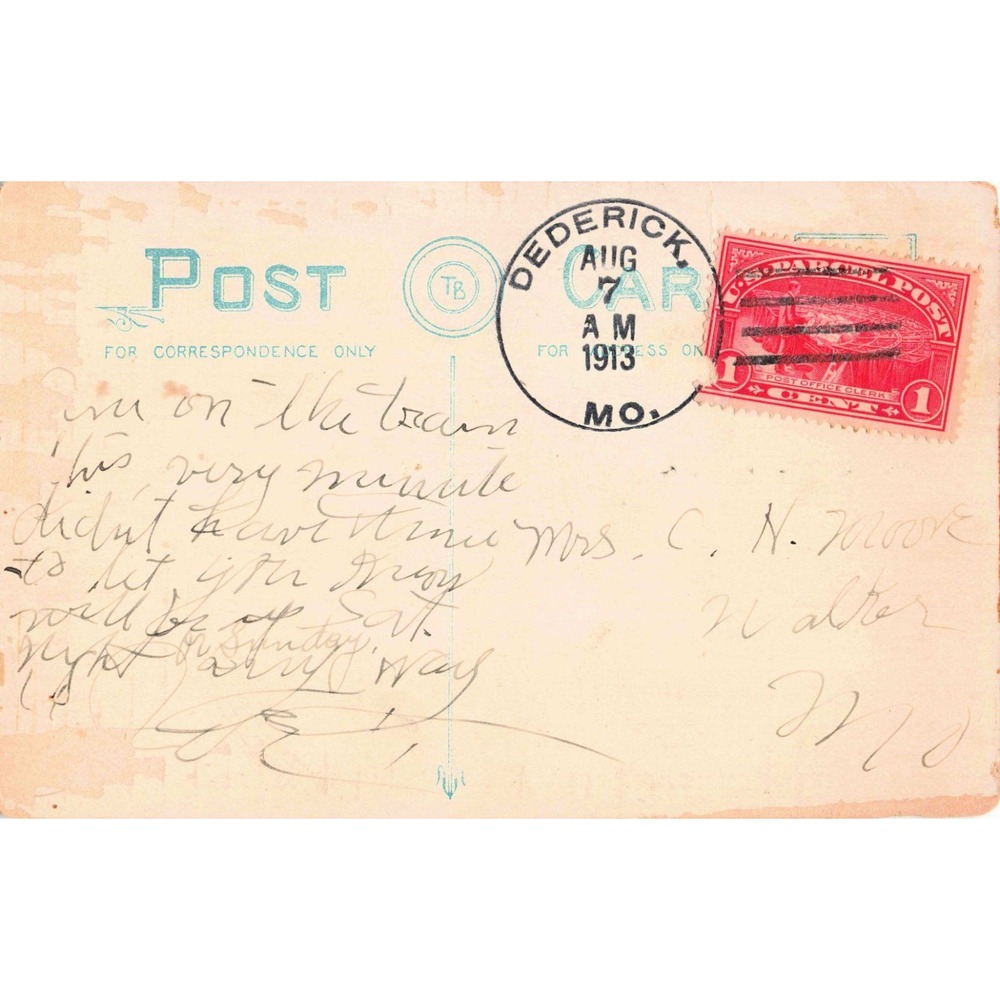 POST CARD
TB
FOR CORRESPONDENCE ONLY
DEDERICK,
AUG
7
AM
1913
MO.
U.S. PARCEL POST
POST OFFICE CLERK
1 CENT 1
on the train
this very minute
didn't have time
to let you know
will be up Sat.
night or Sunday
any way
Mrs. C. H. Moore
Walker
Mo